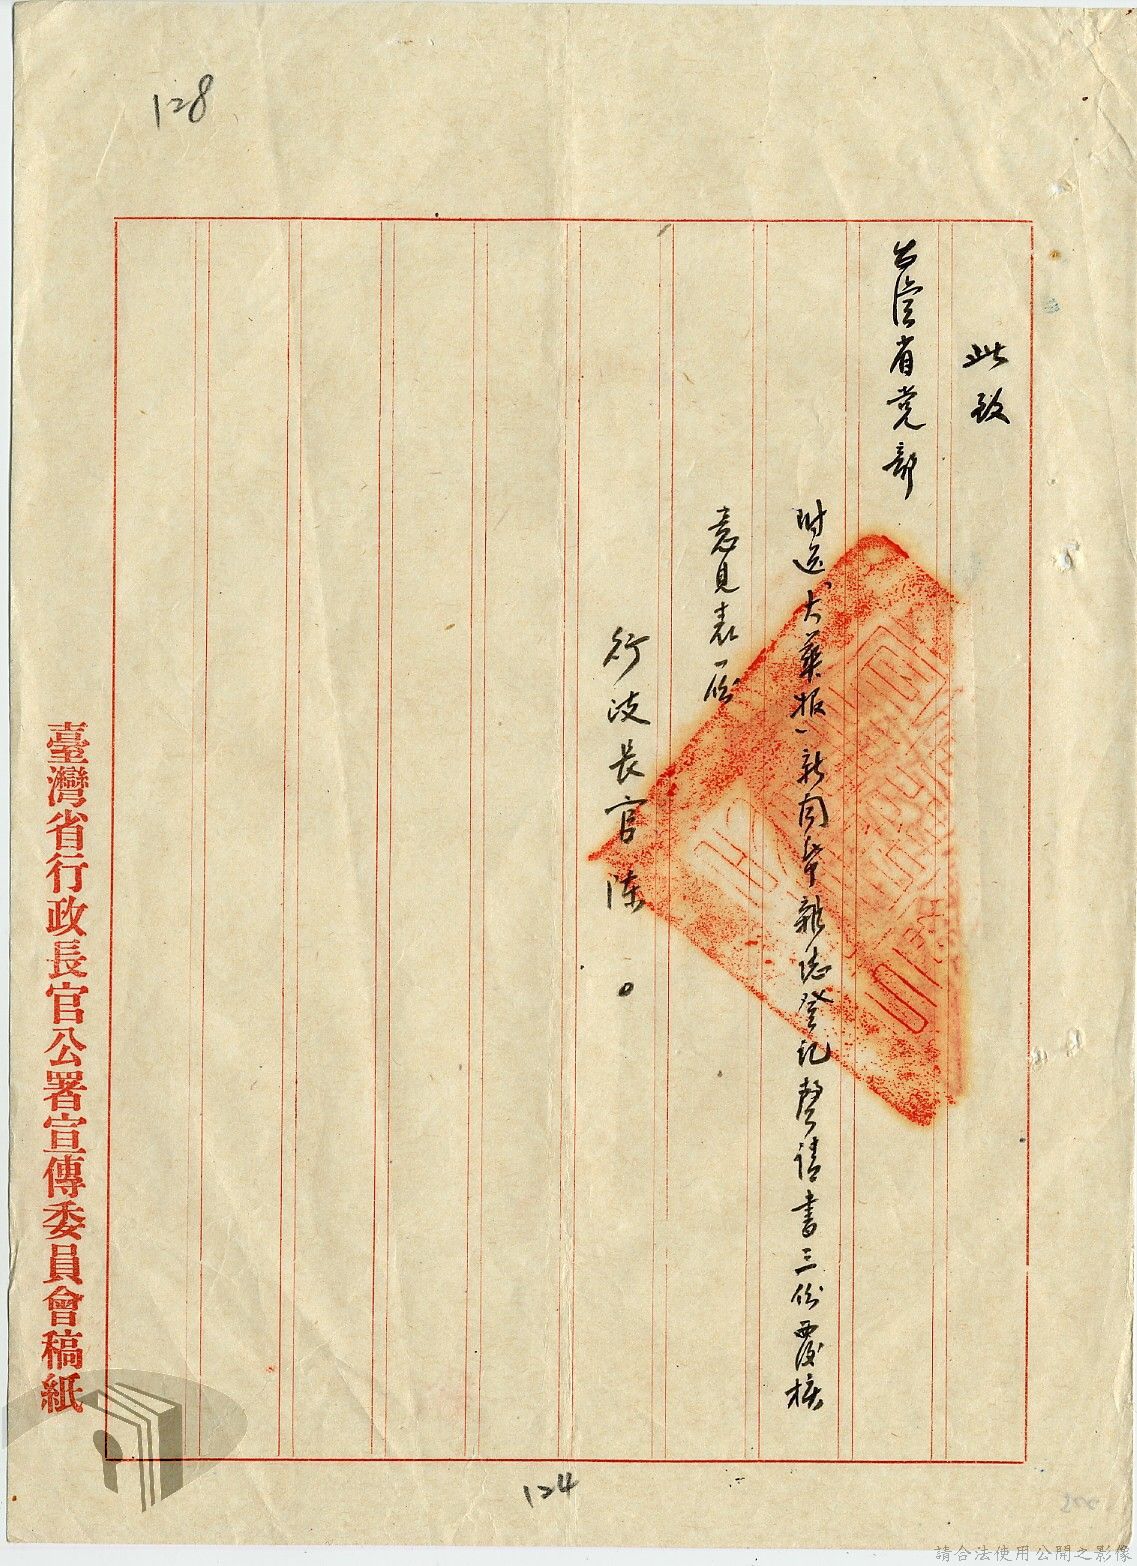 128
此致
台湾省党部
附送「大華报」新闻㡀雜誌登记聲请書三份覆核
意見表一份
行政長官陈。
臺灣省行政長官公署宣傳委員會稿紙
124
200
請合法使用公開之影像